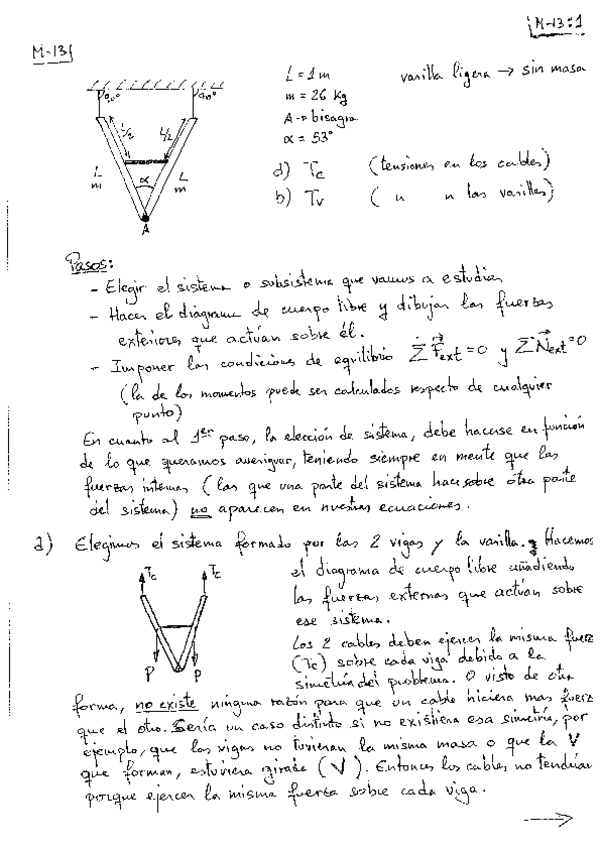 M-13:1
M-13
90°
90°
L/2
L/2
L
m
α
L
m
A
L = 1 m
m = 26 Kg
A → bisagra
α = 53°
varilla ligera → sin masa
a) Tc (tensiones en los cables)
b) Tv ( " " las varillas)
Pasos:
- Elegir el sistema o subsistema que vamos a estudiar
- Hacer el diagrama de cuerpo libre y dibujar las fuerzas
exteriores que actúan sobre él.
- Imponer las condiciones de equilibrio Σ F⃗ext = 0 y Σ N⃗ext = 0
(la de los momentos puede ser calculados respecto de cualquier
punto)
En cuanto al 1er paso, la elección de sistema, debe hacerse en función
de lo que queramos averiguar, teniendo siempre en mente que las
fuerzas internas (las que una parte del sistema hace sobre otra parte
del sistema) no aparecen en nuestras ecuaciones.
a) Elegimos el sistema formado por las 2 vigas y la varilla. Hacemos
el diagrama de cuerpo libre añadiendo
las fuerzas externas que actúan sobre
ese sistema.
Tc
Tc
P
P
Los 2 cables deben ejercer la misma fuerz
(Tc) sobre cada viga debido a la
simetría del problema. O visto de otra
forma, no existe ninguna razón para que un cable hiciera mas fuerz
que el otro. Sería un caso distinto si no existiera esa simetría, por
ejemplo, que las vigas no tuvieran la misma masa o que la V
que forman, estuviera girada (V). Entonces los cables no tendrían
porque ejercer la misma fuerza sobre cada viga.
→